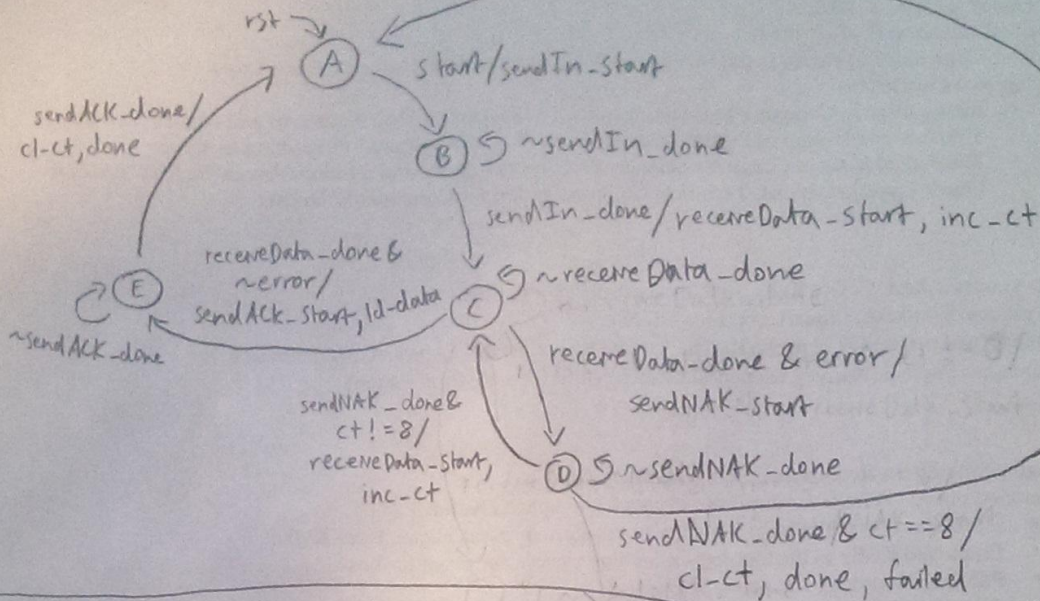 rst
A
start/sendIn_start
sendACK_done/
cl-ct, done
B
~sendIn_done
sendIn_done/receiveData_start, inc_ct
receiveData_done &
~error/
sendACK_start, ld-data
E
~sendACK_done
C
~receiveData_done
receiveData_done & error/
sendNAK_start
sendNAK_done &
ct!=8/
receiveData_start,
inc_ct
D
~sendNAK_done
sendNAK_done & ct==8/
cl-ct, done, failed